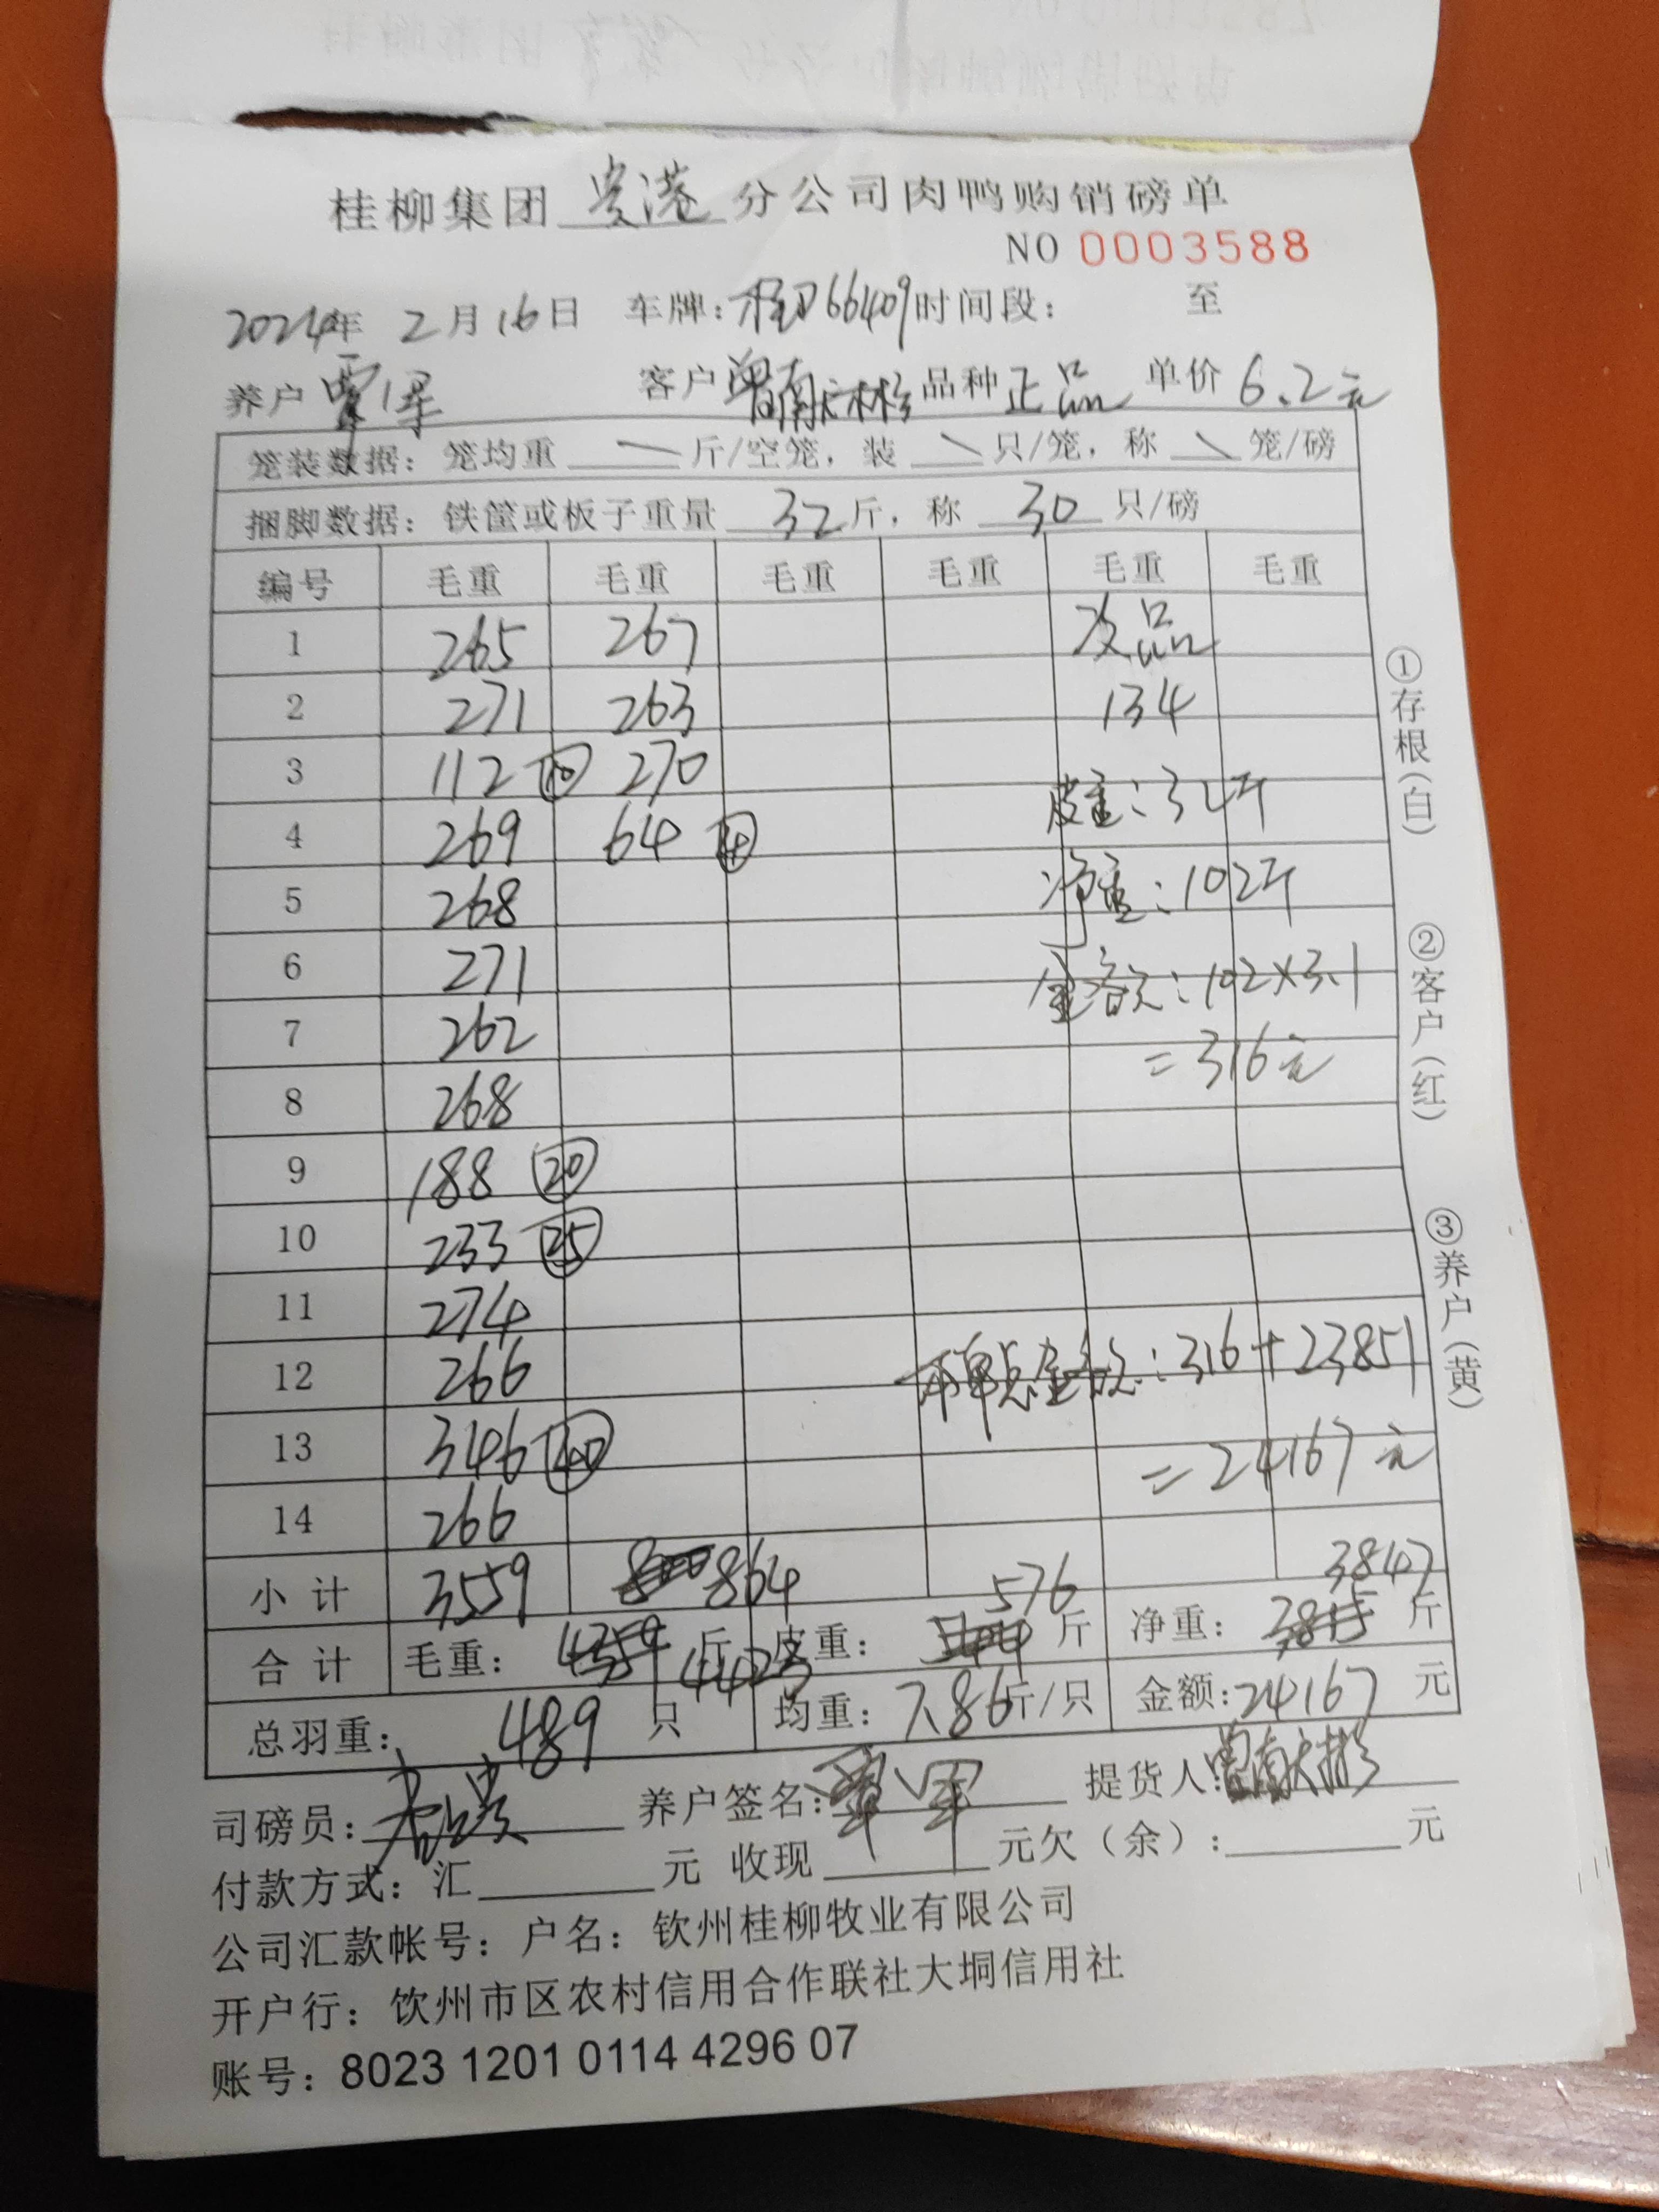 桂柳集团 贵港 分公司肉鸭购销磅单
NO 0003588
2024年 2月16日 车牌: 桂D66409 时间段: 至
养户 覃 客户 曾南 品种 正品 单价 6.2元
笼装数据: 笼均重 \ 斤/空笼, 装 \ 只/笼, 称 \ 笼/磅
捆脚数据: 铁筐或板子重量 32 斤, 称 30 只/磅
编号 毛重 毛重 毛重 毛重 毛重 毛重
1 265 267 次品
2 271 263 134
3 112 ⑩ 270 皮重: 32斤
4 269 64 ④
5 268 净重: 102斤
6 271 金额: 102×3.1
7 262 =316元
8 268
9 188 ⑳
10 233 ㉕
11 274
12 266 本单总金额: 316+23851
13 346 ㊵ =24167元
14 266
小计 3559 864 576 3847
合计 毛重: 4423 斤 皮重: 斤 净重: 斤
总羽重: 489 只 均重: 7.86斤/只 金额: 24167 元
司磅员: 养户签名: 覃 军 提货人: 曾南
付款方式: 汇 元 收现 元欠(余): 元
公司汇款帐号: 户名: 钦州桂柳牧业有限公司
开户行: 钦州市区农村信用合作联社大垌信用社
账号: 8023 1201 0114 4296 07
①存根(白)
②客户(红)
③养户(黄)